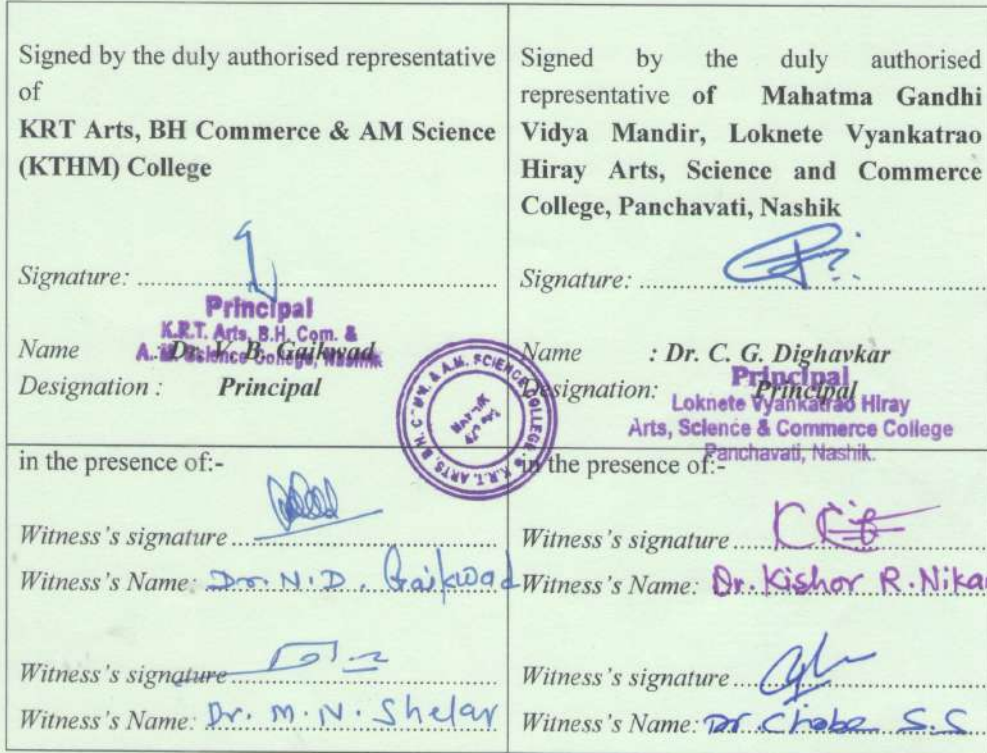 Signed by the duly authorised representative
of
KRT Arts, BH Commerce & AM Science
(KTHM) College
Signature: ....................
Principal
K.R.T. Arts, B.H. Com. &
A.M. Science College, Nashik
Name : Dr. V. B. Gaikwad
Designation : Principal
in the presence of:-
Witness's signature ....................
Witness's Name: Dr. N. D. Gaikwad
Witness's signature ....................
Witness's Name: Dr. M. N. Shelar
Signed by the duly authorised
representative of Mahatma Gandhi
Vidya Mandir, Loknete Vyankatrao
Hiray Arts, Science and Commerce
College, Panchavati, Nashik
Signature: ....................
Name : Dr. C. G. Dighavkar
Designation: Principal
Principal
Loknete Vyankatrao Hiray
Arts, Science & Commerce College
Panchavati, Nashik.
in the presence of:-
Witness's signature ....................
Witness's Name: Dr. Kishor R. Nikam
Witness's signature ....................
Witness's Name: Dr. Chobe S.S
K.R.T. ARTS, B.H. COMM. & A.M. SCIENCE COLLEGE